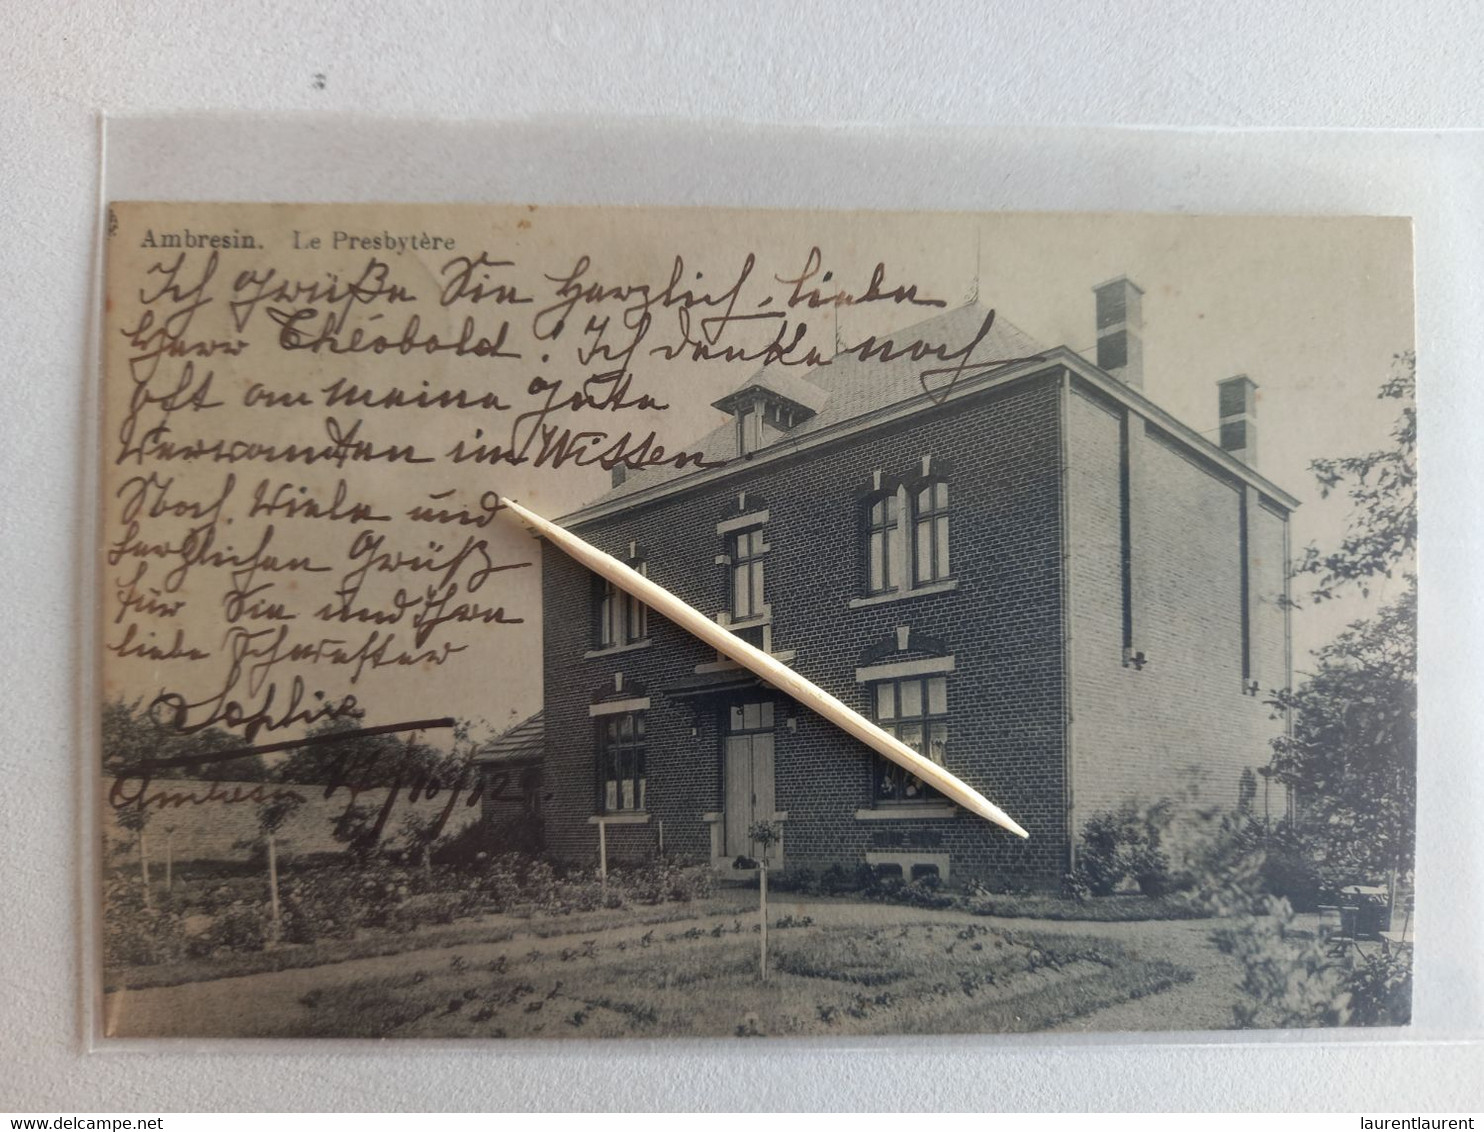 Ambresin. Le Presbytère
Ich grüße Sie Herzlich, liebe
Herr Théobold! Ich denke noch
oft an meine gute
Verwandten in Wissen.
Noch viele und
herzlichen Grüß
für Sie und Ihre
liebe Schwester
Sophie
delcampe.net
laurentlaurent